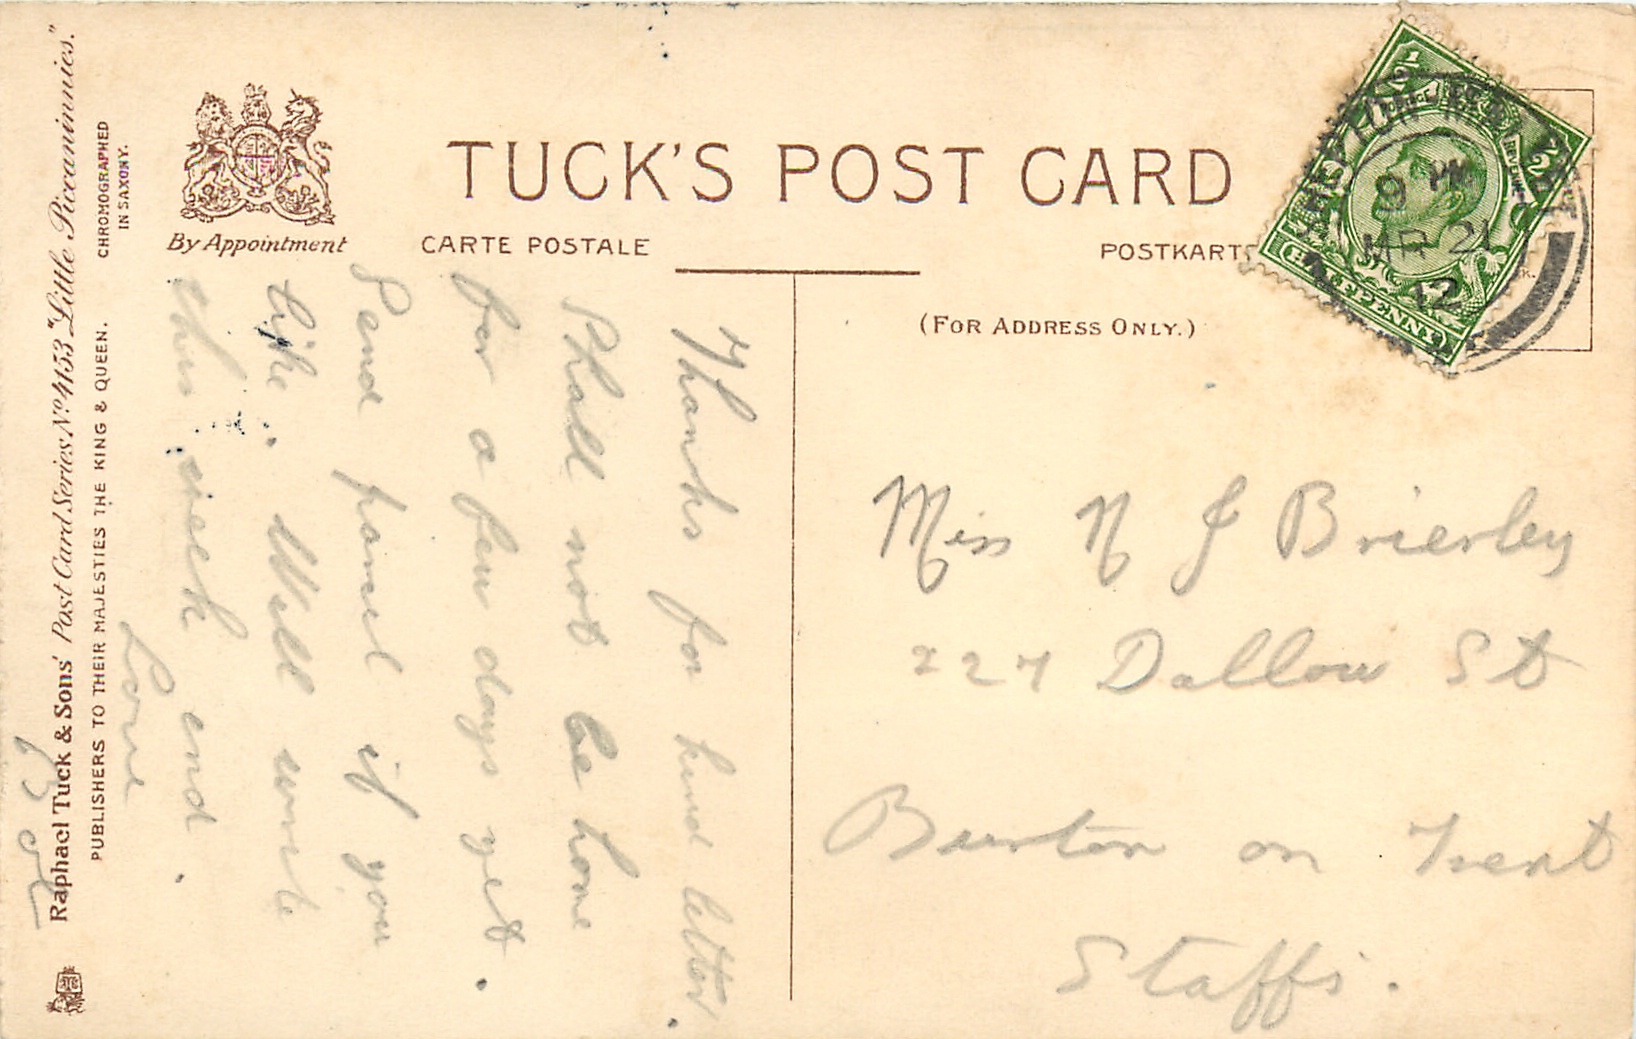 TUCK'S POST CARD
By Appointment
CARTE POSTALE
POSTKARTE
(FOR ADDRESS ONLY.)
Raphael Tuck & Sons' Post Card Series Nº 4153 "Little Piccaninnies."
PUBLISHERS TO THEIR MAJESTIES THE KING & QUEEN.
CHROMOGRAPHED
IN SAXONY.
Thanks for kind letter.
Shall not be home
for a few days yet.
Send parcel if you
like. Will write
this week end.
Love
Miss N J Brierley
227 Dallow St
Burton on Trent
Staffs.
HALFPENNY
9 PM
MR 21
12